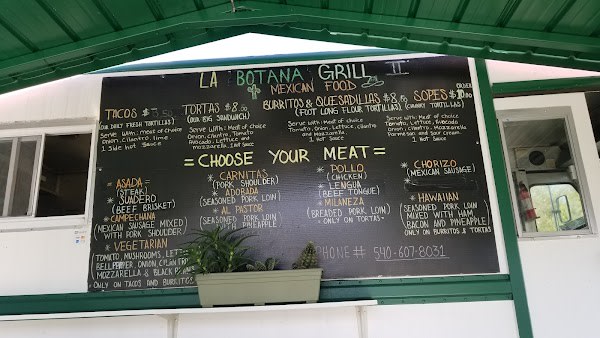 LA BOTANA GRILL II
MEXICAN FOOD
TACOS $3.50
(OUR DAILY FRESH TORTILLAS)
Serve with: meat of choice
Onion, cilantro, lime
1 side Hot Sauce
TORTAS $8.50
(OUR BIG SANDWICH)
Serve with: Meat of choice
Onion, cilantro, Tomato
Avocado, Lettuce and
mozzarella. 1 Hot Sauce
BURRITOS & QUESADILLAS $8.50
(FOOT LONG FLOUR TORTILLAS)
Serve with: Meat of choice
Tomato, Onion, Lettuce, cilantro
and mozzarella
1 Hot Sauce
SOPES ORDER $10.90
(CHUNKY TORTILLAS)
Serve with: Meat of choice
Onion, cilantro, mozzarella
Parmesan and Sour cream.
1 Hot Sauce
= CHOOSE YOUR MEAT =
* ASADA =
(STEAK)
* SUADERO
(BEEF BRISKET)
* CAMPECHANA
(MEXICAN SAUSAGE MIXED
WITH PORK SHOULDER)
* VEGETARIAN
(TOMATO, MUSHROOMS, LETT
BELLPEPPER, ONION,
MOZZARELLA & BLACK
* ONLY ON TACOS AND BURRITOS
* CARNITAS
(PORK SHOULDER)
* ADOBADA
(SEASONED PORK LOIN)
* AL PASTOR
(SEASONED PORK LOIN
WITH PINEAPPLE)
* POLLO
(CHICKEN)
* LENGUA
(BEEF TONGUE)
* MILANEZA
(BREADED PORK LOIN)
* ONLY ON TORTAS *
* CHORIZO
(MEXICAN SAUSAGE)
* HAWAIIAN
(SEASONED PORK LOIN
MIXED WITH HAM,
BACON AND PINEAPPLE)
ONLY ON BURRITOS & TORTAS
PHONE # 540-607-8031